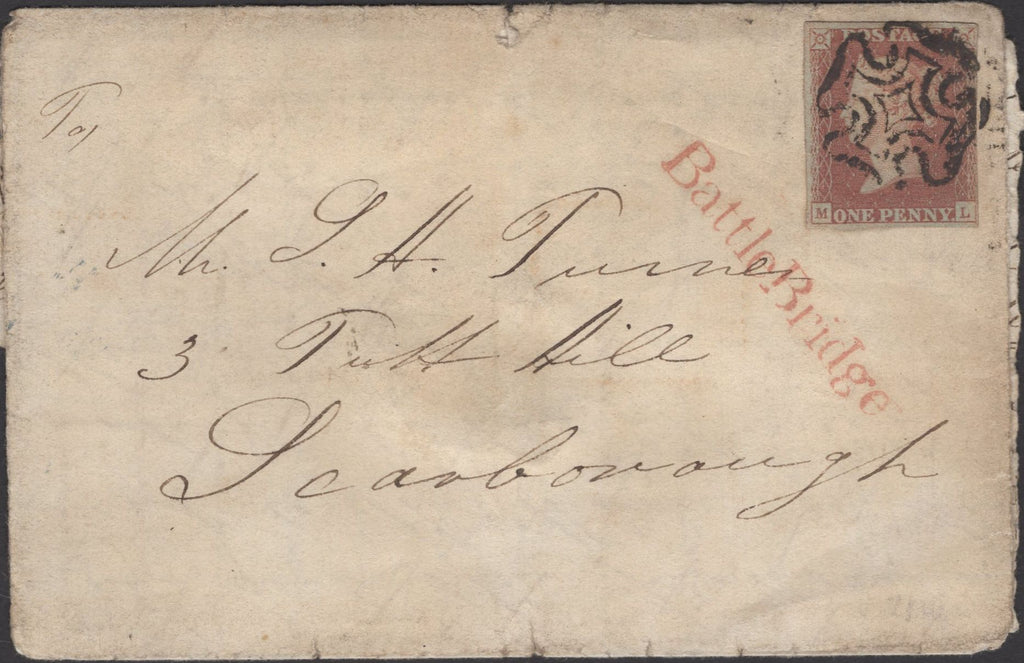 To,
POSTAGE
M ONE PENNY L
Battle Bridge
Mr. S. H. Turner
3 Tutt Hill
Scarborough